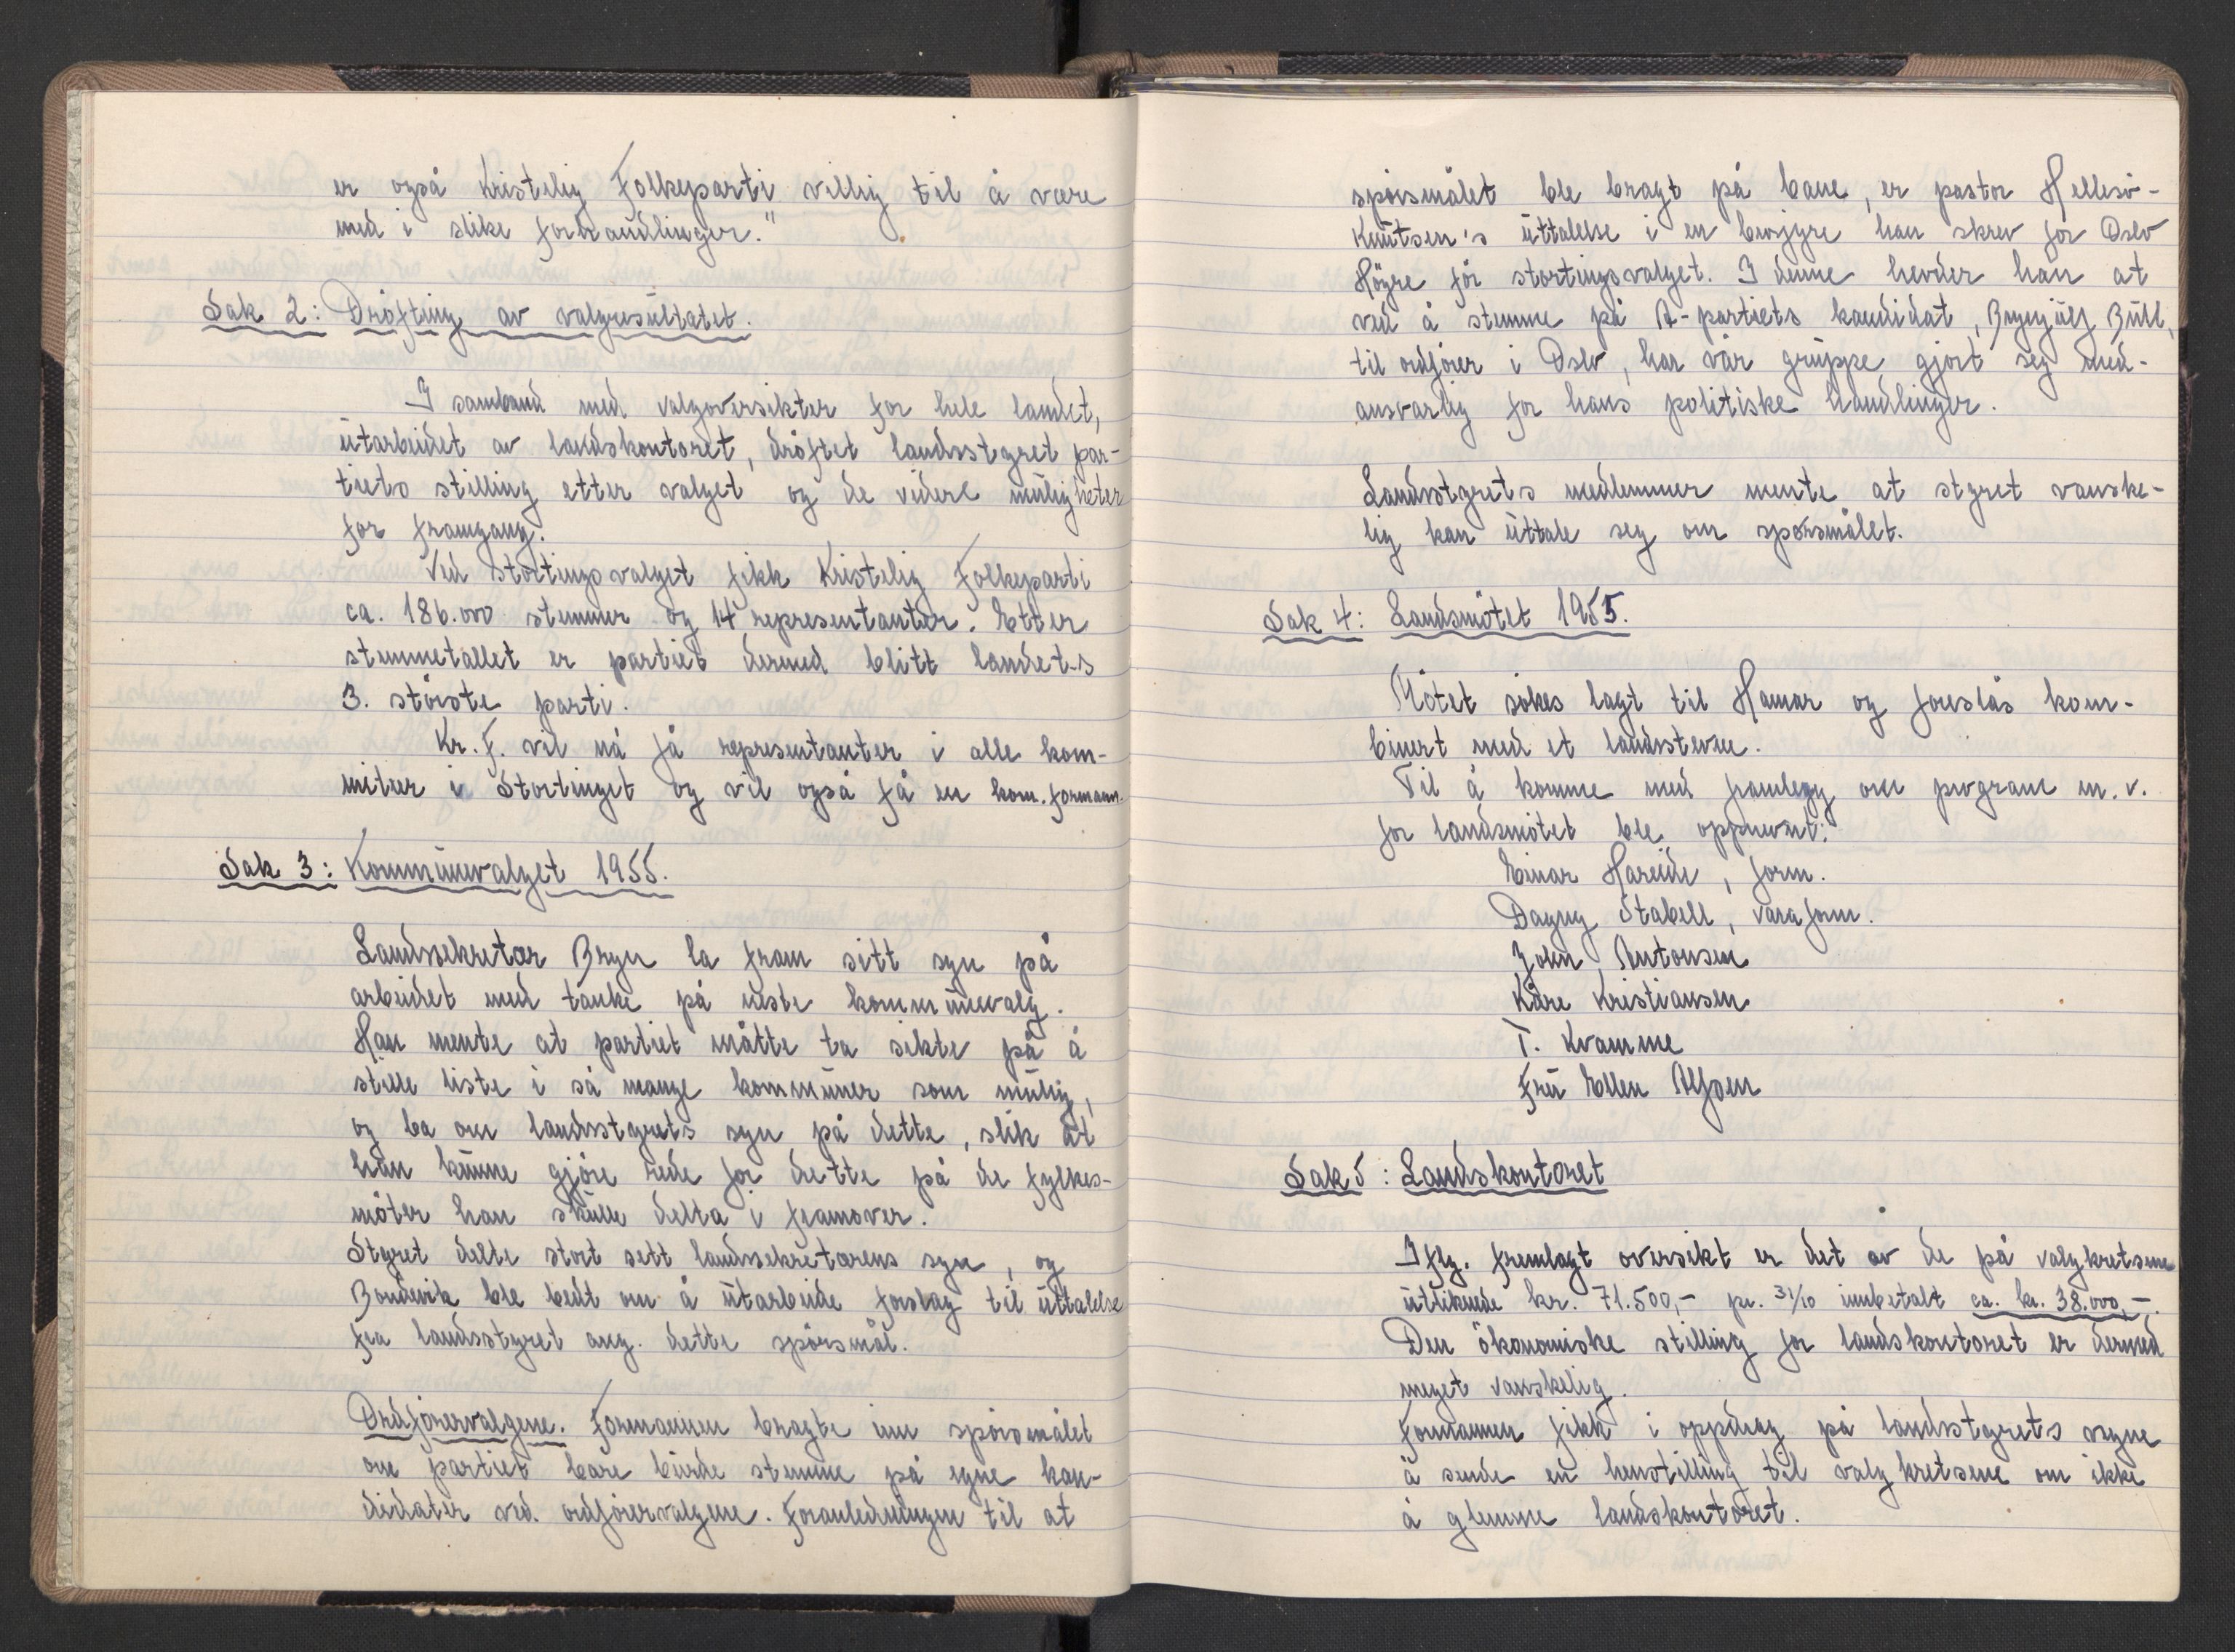 er også Kristelig Folkeparti villig til å være
med i slike forhandlinger."
Sak 2: Dröfting av valgresultatet.
I samband med valgoversikter for hele landet,
utarbeidet av landskontoret, dröftet landsstyret par-
tiets stilling etter valget og de videre muligheter
for framgang.
Ved Stortingsvalget fikk Kristelig Folkeparti
ca. 186.000 stemmer og 14 representanter. Etter
stemmetallet er partiet dermed blitt landets
3. störste parti.
Kr. F. vil nå få representanter i alle kom-
miteer i Stortinget og vil også få en kom. formann.
Sak 3: Kommunevalget 1955.
Landssekretær Bryn la fram sitt syn på
arbeidet med tanke på neste kommunevalg.
Han mente at partiet måtte ta sikte på å
stille liste i så mange kommuner som mulig,
og ba om landsstyrets syn på dette, slik at
han kunne gjöre rede for dette på de fylkes-
möter han skulle delta i framover.
Styret delte stort sett landssekretærens syn, og
Bondevik ble bedt om å utarbeide forslag til uttalelse
fra landsstyret ang. dette spörsmål.
Ordförervalgene. Formannen bragte inn spörsmålet
om partiet bare burde stemme på egne kan-
didater ved ordförervalgene. Foranledningen til at
spörsmålet ble bragt på bane, er pastor Hellesö-
Knutsen's uttalelse i en brosjyre han skrev for Oslo
Höyre för stortingsvalget. I denne hevder han at
ved å stemme på A-partiets kandidat, Brynjulf Bull,
til ordförer i Oslo, har vår gruppe gjort seg med-
ansvarlig for hans politiske handlinger.
Landsstyrets medlemmer mente at styret vanske-
lig kan uttale seg om spørsmålet.
Sak 4: Landsmötet 1955.
Mötet sökes lagt til Hamar og foreslås kom-
binert med et landsstevne.
Til å komme med framlegg om program m.v.
for landsmötet ble oppnevnt:
Einar Hareide, form.
Dagny Stabell, varaform.
John Antonsen
Kåre Kristiansen
T. Kvamme
Fru Ellen Alfsen
Sak 5: Landskontoret
Iflg. fremlagt oversikt er det av de på valgkretsene
utliknede kr. 71.500,- pr. 31/10 innbetalt ca. kr. 38.000,-.
Den ökonomiske stilling for landskontoret er dermed
meget vanskelig.
Formannen fikk i oppdrag på landsstyrets vegne
å sende en henstilling til valgkretsene om ikke
å glemme landskontoret.